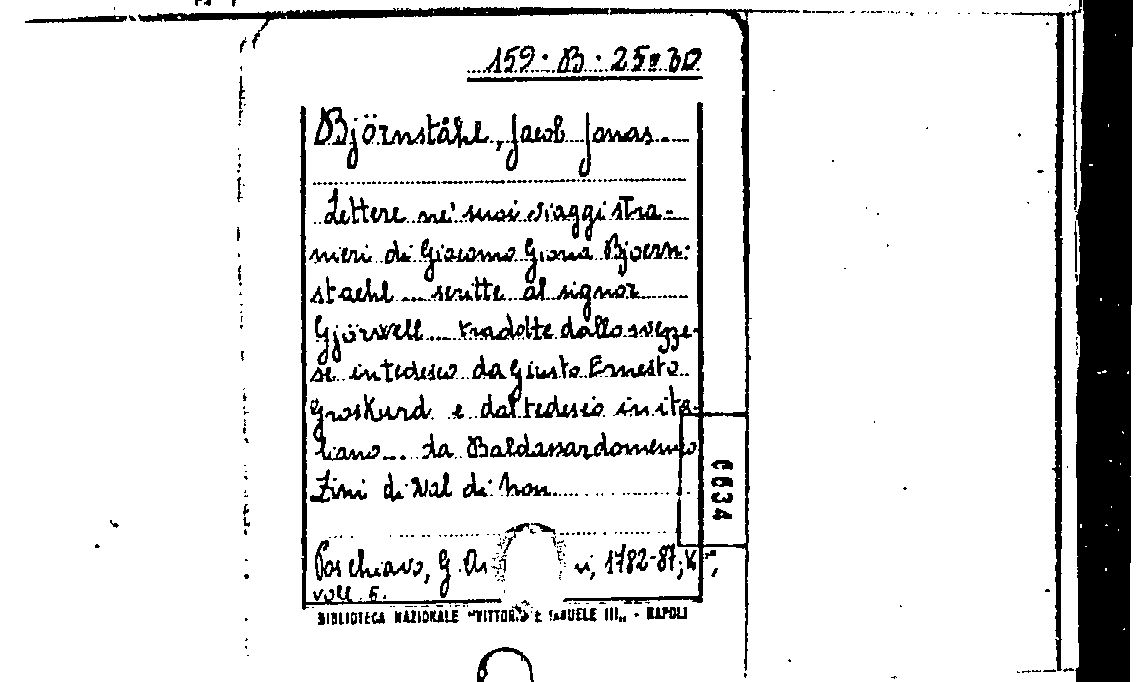 159. B. 25-30
Björnståhl, Jacob Jonas
Lettere ne' suoi viaggi stra-
nieri di Giacomo Giona Bjoern:
staehl... scritte al signor
Gjörwell... tradotte dallo svezze-
se in tedesco da Giusto Ernesto
Groskurd e dal tedesco in ita-
liano... da Baldassardomenico
Zini di Val di Non
6634
Poschiavo, G. 1782-87;
voll. 6.
BIBLIOTECA NAZIONALE "VITTORIO E III" - NAPOLI